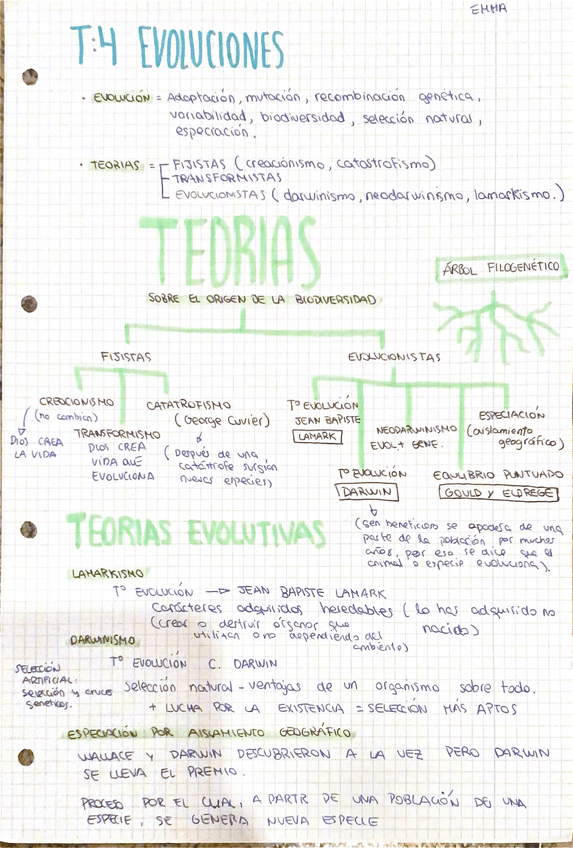 EMMA
T:4 EVOLUCIONES
· EVOLUCIÓN = Adaptación, mutación, recombinación genética,
variabilidad, biodiversidad, selección natural,
especiación.
· TEORIAS = FIJISTAS (creacionismo, catastrofismo)
TRANSFORMISTAS
EVOLUCIONISTAS (darwinismo, neodarwinismo, lamarkismo.)
TEORIAS
ÁRBOL FILOGENÉTICO
SOBRE EL ORIGEN DE LA BIODIVERSIDAD
FIJISTAS
EVOLUCIONISTAS
CREACIONISMO
(no cambian)
DIOS CREA
LA VIDA
TRANSFORMISMO
DIOS CREA
VIDA QUE
EVOLUCIONA
CATATROFISMO
(George Cuvier)
(Después de una
catástrofe surgían
nuevas especies)
Tº EVOLUCIÓN
JEAN BAPTISTE
LAMARK
NEODARWINISMO
EVOL + GENE.
ESPECIACIÓN
(aislamiento
geográfico)
Tº EVOLUCIÓN
DARWIN
EQUILIBRIO PUNTUADO
GOULD Y ELDREGE
(Gen beneficioso se apodera de una
parte de la población por muchos
años, por eso se dice que el
animal o especie evoluciona).
TEORIAS EVOLUTIVAS
LAMARKISMO
Tº EVOLUCIÓN → JEAN BAPISTE LAMARK
Carácteres adquiridos heredables (lo has adquirido no
nacido)
(crear o destruir órganos que
utilizan o no dependiendo del
ambiente)
DARWINISMO
Tº EVOLUCIÓN C. DARWIN
SELECCIÓN
ARTIFICIAL:
Selección y cruces
geneticos.
Selección natural - ventajas de un organismo sobre todo.
+ LUCHA POR LA EXISTENCIA = SELECCIÓN MÁS APTOS
ESPECIACIÓN POR AISLAMIENTO GEOGRÁFICO
WALLACE Y DARWIN DESCUBRIERON A LA VEZ PERO DARWIN
SE LLEVA EL PREMIO.
PROCESO POR EL CUAL, A PARTIR DE UNA POBLACIÓN DE UNA
ESPECIE, SE GENERA NUEVA ESPECIE